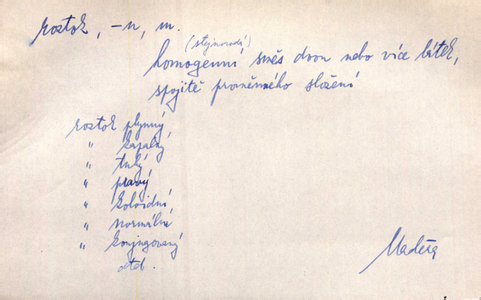 roztok, -u, m.
(stejnorodá)
homogenní směs dvou nebo více látek,
spojitě proměnného složení
roztok plynný,
" kapalný
" tuhý
" pravý
" koloidní,
" normální
" konjugovaný
atd.
Maděra